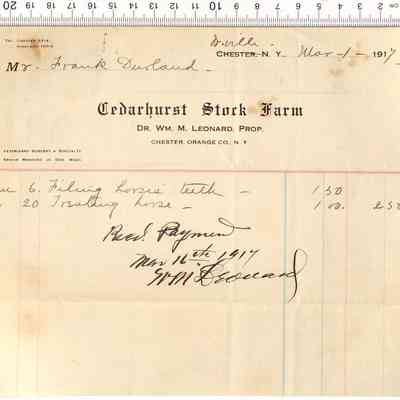 20 19 18 17 16 15 14 13 12 11 10 9 8 7 6 5 4 3 2 1 0
CHESTER, N. Y. Mar - 1 - 1917
Mr. Frank Durland -
Cedarhurst Stock Farm
DR. WM. M. LEONARD, PROP.
CHESTER, ORANGE CO., N. Y.
VETERINARY SURGERY A SPECIALTY
6. Filing horses teeth - 1 50
20 Treating horse - 1 00. 2 50
Recd. Payment
Mar 16th 1917
WM Leonard